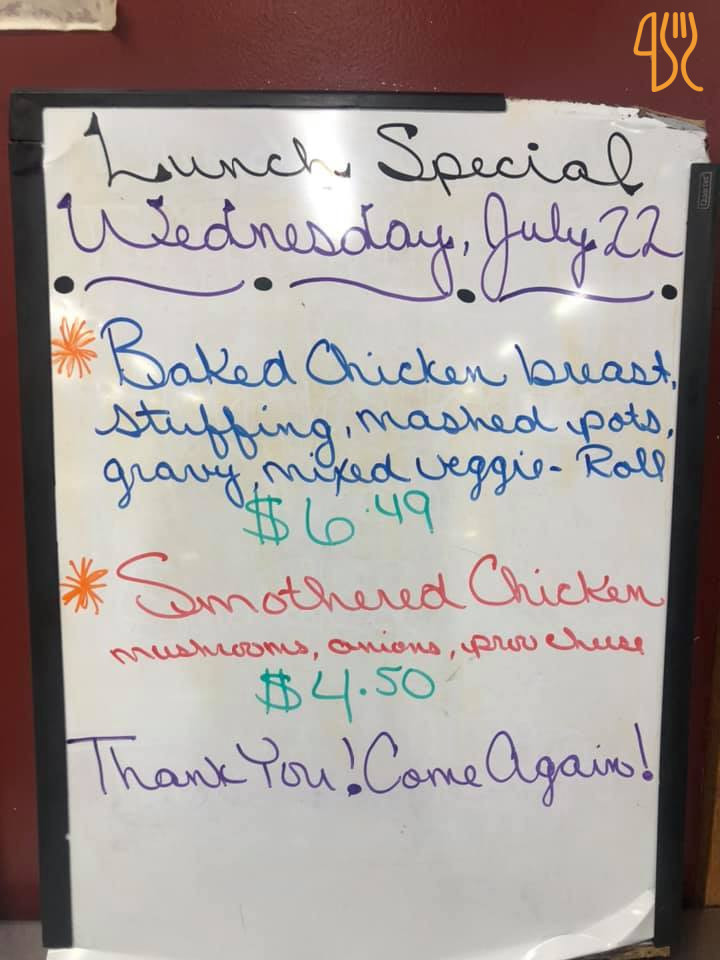 Lunch Special
Wednesday, July 22
Baked Chicken breast,
stuffing, mashed pots,
gravy, mixed veggie - Roll
$6.49
Smothered Chicken
mushrooms, onions, prov cheese
$4.50
Thank You! Come Again!